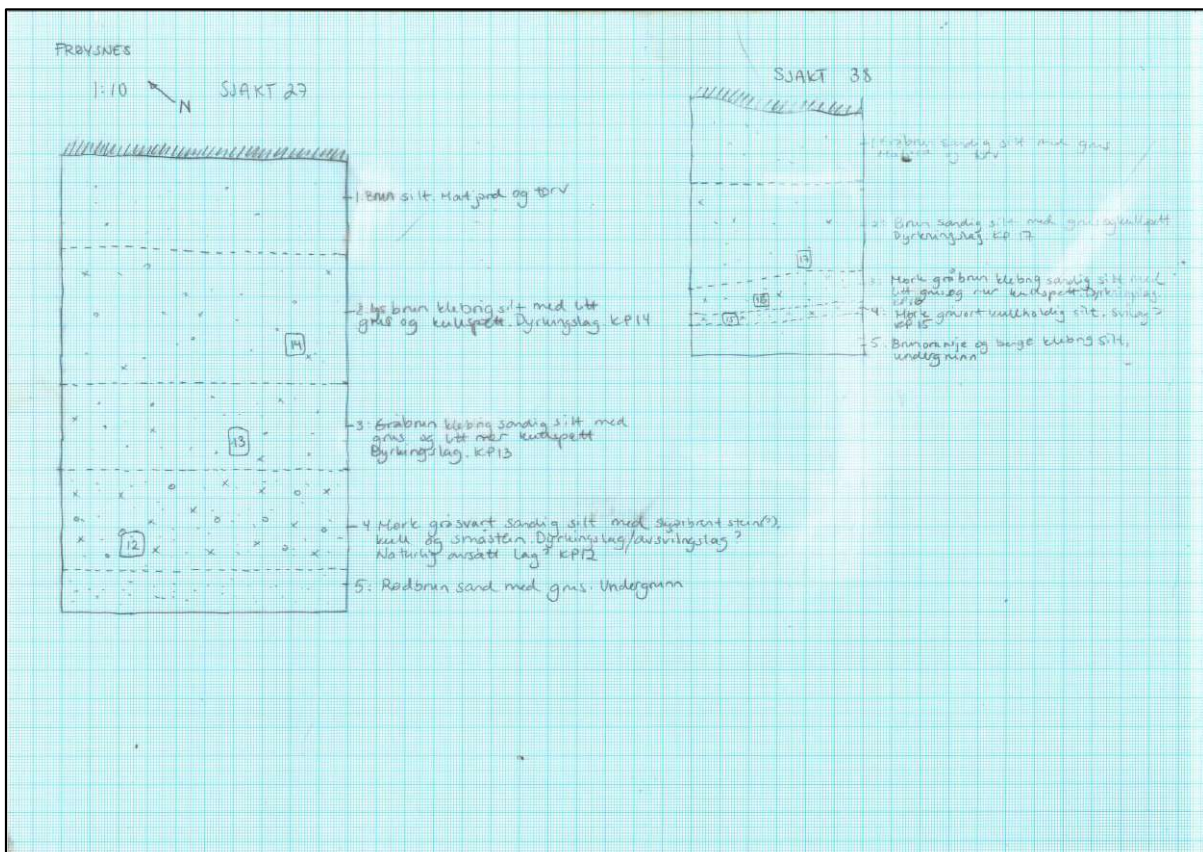 FRØYSNES
1:10
N
SJAKT 27
1. Brun silt. Matjord og torv
2. Lys brun klebrig silt med litt
grus og kullspett. Dyrkningslag. KP14
14
3: Gråbrun klebrig sandig silt med
grus og litt mer kullspett
Dyrkningslag. KP13
13
4 Mørk gråsvart sandig silt med skjørbrent stein(?),
kull og småstein. Dyrkningslag/avsvidningslag?
Naturlig avsatt lag? KP12
12
5: Rødbrun sand med grus. Undergrunn
SJAKT 38
1: Gråbrun sandig silt med grus
og torv
2: Brun sandig silt med grus og kullspett
Dyrkningslag. KP 17
17
3: Mørk gråbrun klebrig sandig silt med
litt grus og mer kullspett. Dyrkningslag.
KP16
16
4: Mørk gråsort kullholdig silt.
KP15
15
5: Brunoransje og beige klebrig silt,
undergrunn